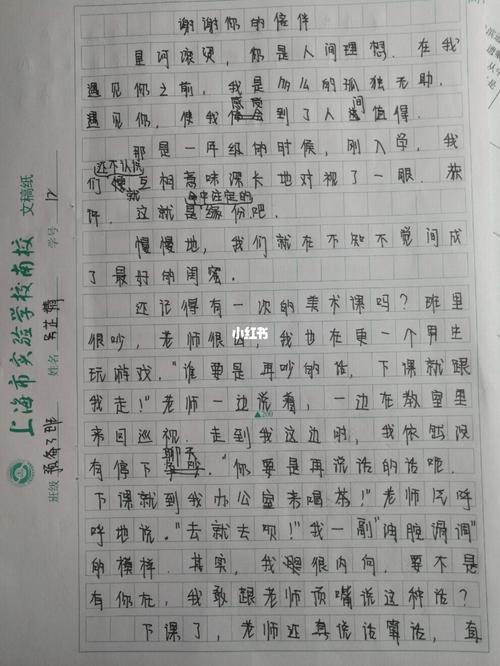 谢谢你的陪伴
星河滚烫，你是人间理想。在我
遇见你之前，我是多么的孤独无助。
感觉 间
遇见你，使我到了人值得。
那是一年级的时候，刚入学，我
还不认识
们互相意味深长地对视了一眼。
就 命中注定的
这就是缘份吧。
慢慢地，我们就在不知不觉间成
了最好的闺蜜。
还记得有一次的美术课吗？班里
很吵，老师很，我也在更一个男生
玩游戏。“谁要是再吵的话，下课就跟
我走！”老师一边说着，一边在教室里
来回巡视。走到我这边时，我依然没
聊天
有停下。“你要是再说话的话呢，
下课就到我办公室来喝茶！”老师气呼
呼地说。“去就去呗！”我一副“油腔滑调”
的模样。其实，我很内向，要不是
有你在，我敢跟老师顶嘴说这种话？
下课了，老师还真说话算话，直
小红书
▲200
上海市实验学校南校 文稿纸
班级 预备 班 姓名 学号 12